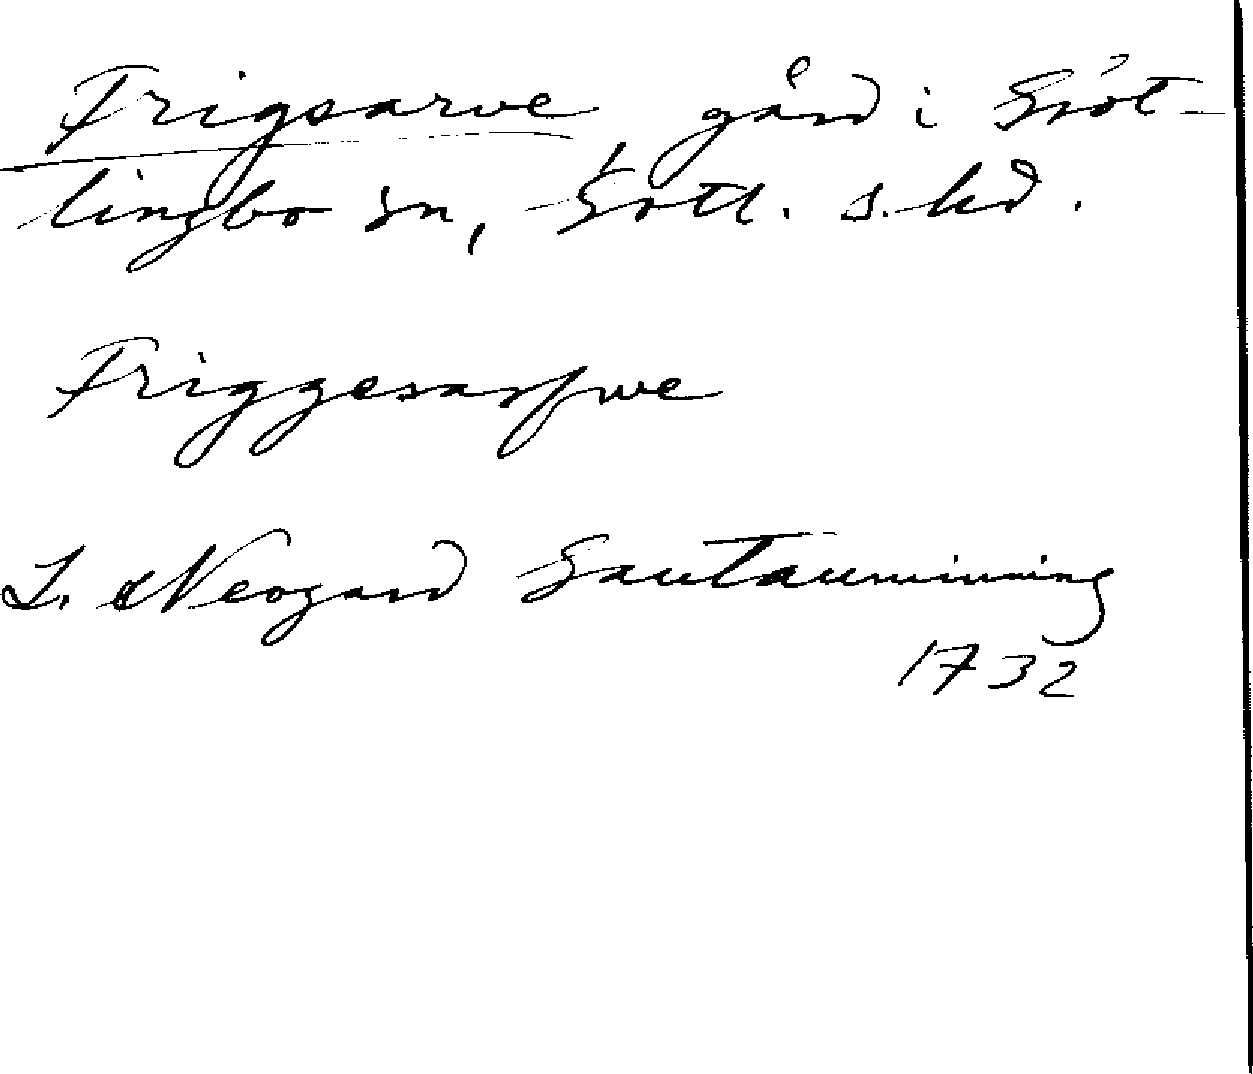 Frigsarve, gård i Gröt-
lingbo sn, Gotl. s. hd.
Friggesarfwe
L. Neogard Gautauminning
1732